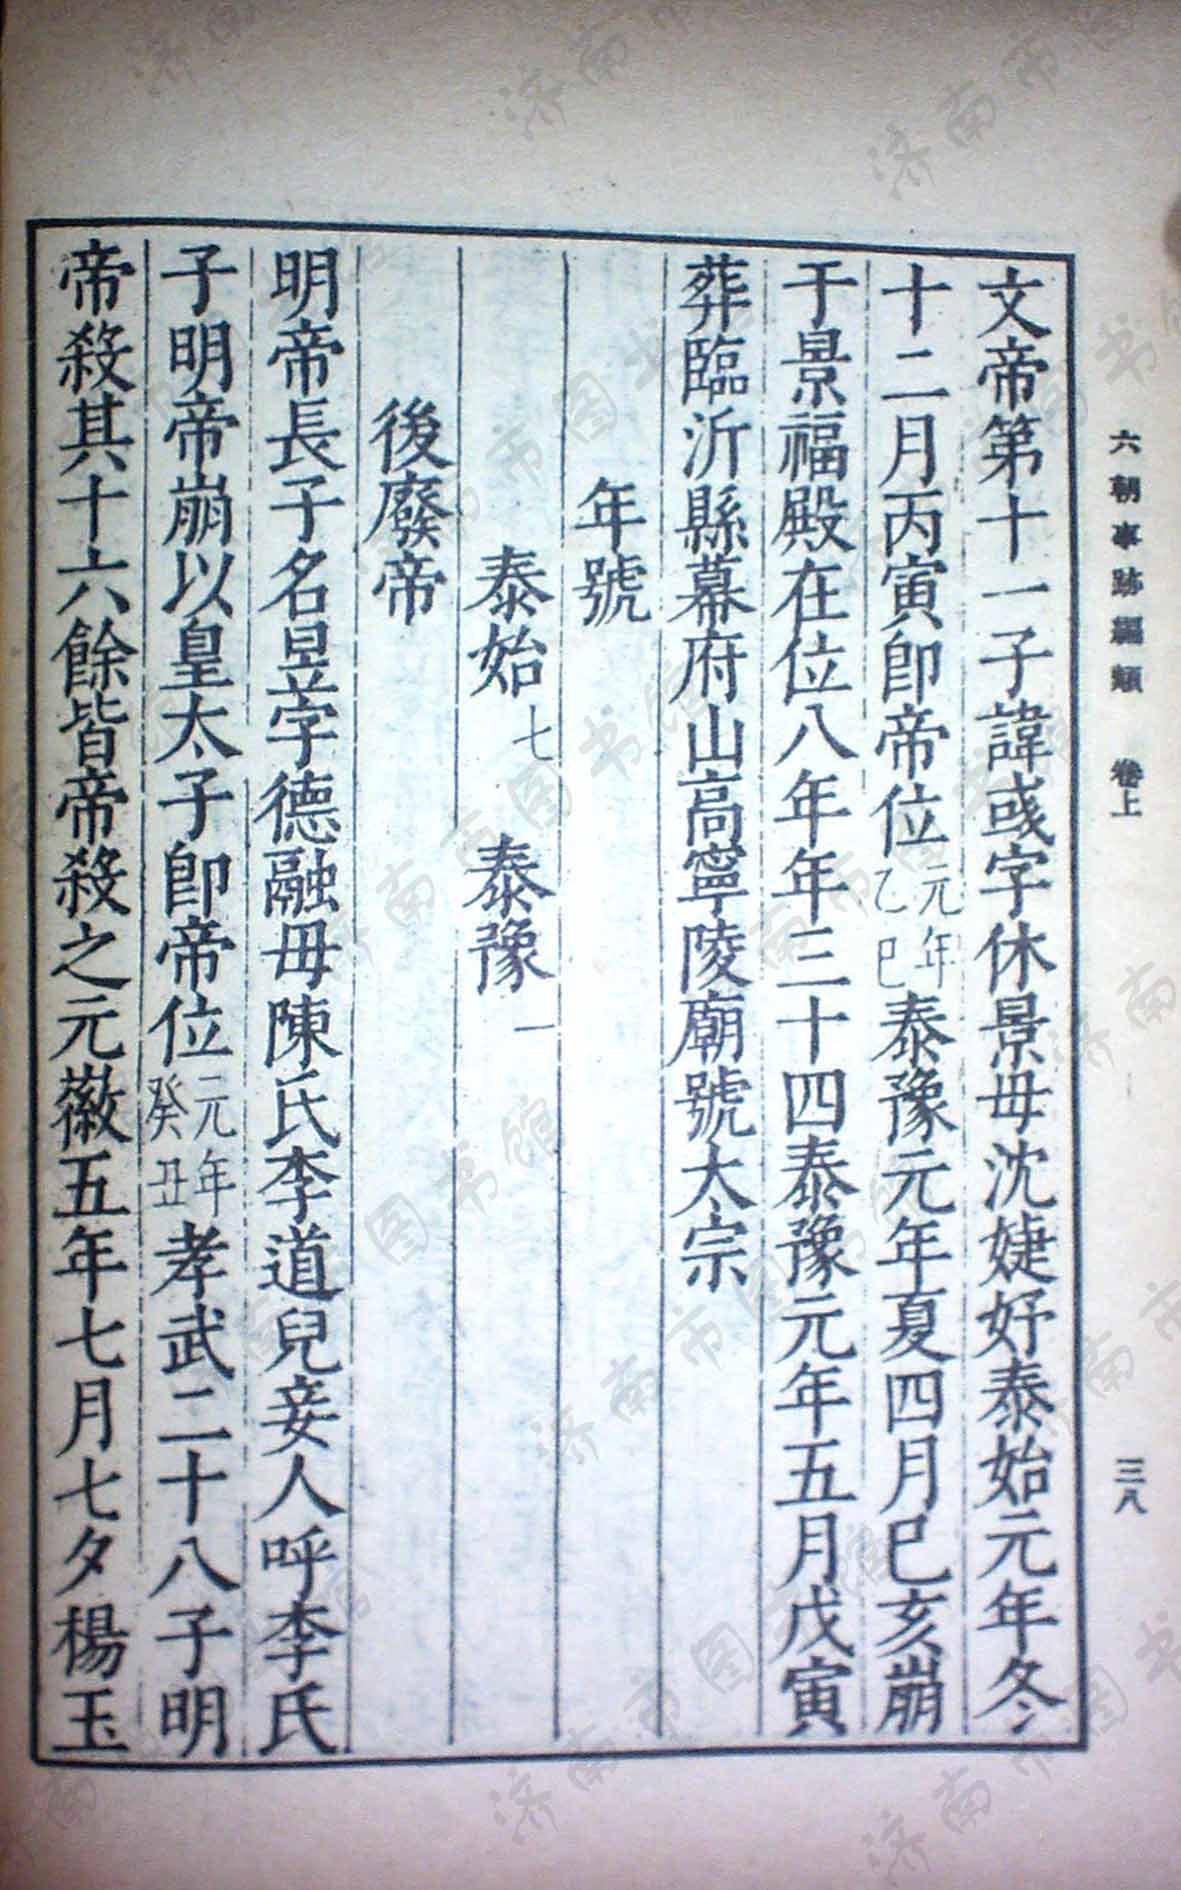 六朝事跡編類 卷上 三八
文帝第十一子諱彧字休景母沈婕妤泰始元年冬
十二月丙寅卽帝位元年乙巳泰豫元年夏四月巳亥崩
于景福殿在位八年年三十四泰豫元年五月戊寅
葬臨沂縣幕府山高寧陵廟號太宗
年號
泰始七 泰豫一
後廢帝
明帝長子名昱字德融母陳氏李道兒妾人呼李氏
子明帝崩以皇太子卽帝位元年癸丑孝武二十八子明
帝殺其十六餘皆帝殺之元徽五年七月七夕楊玉
济南市图书馆